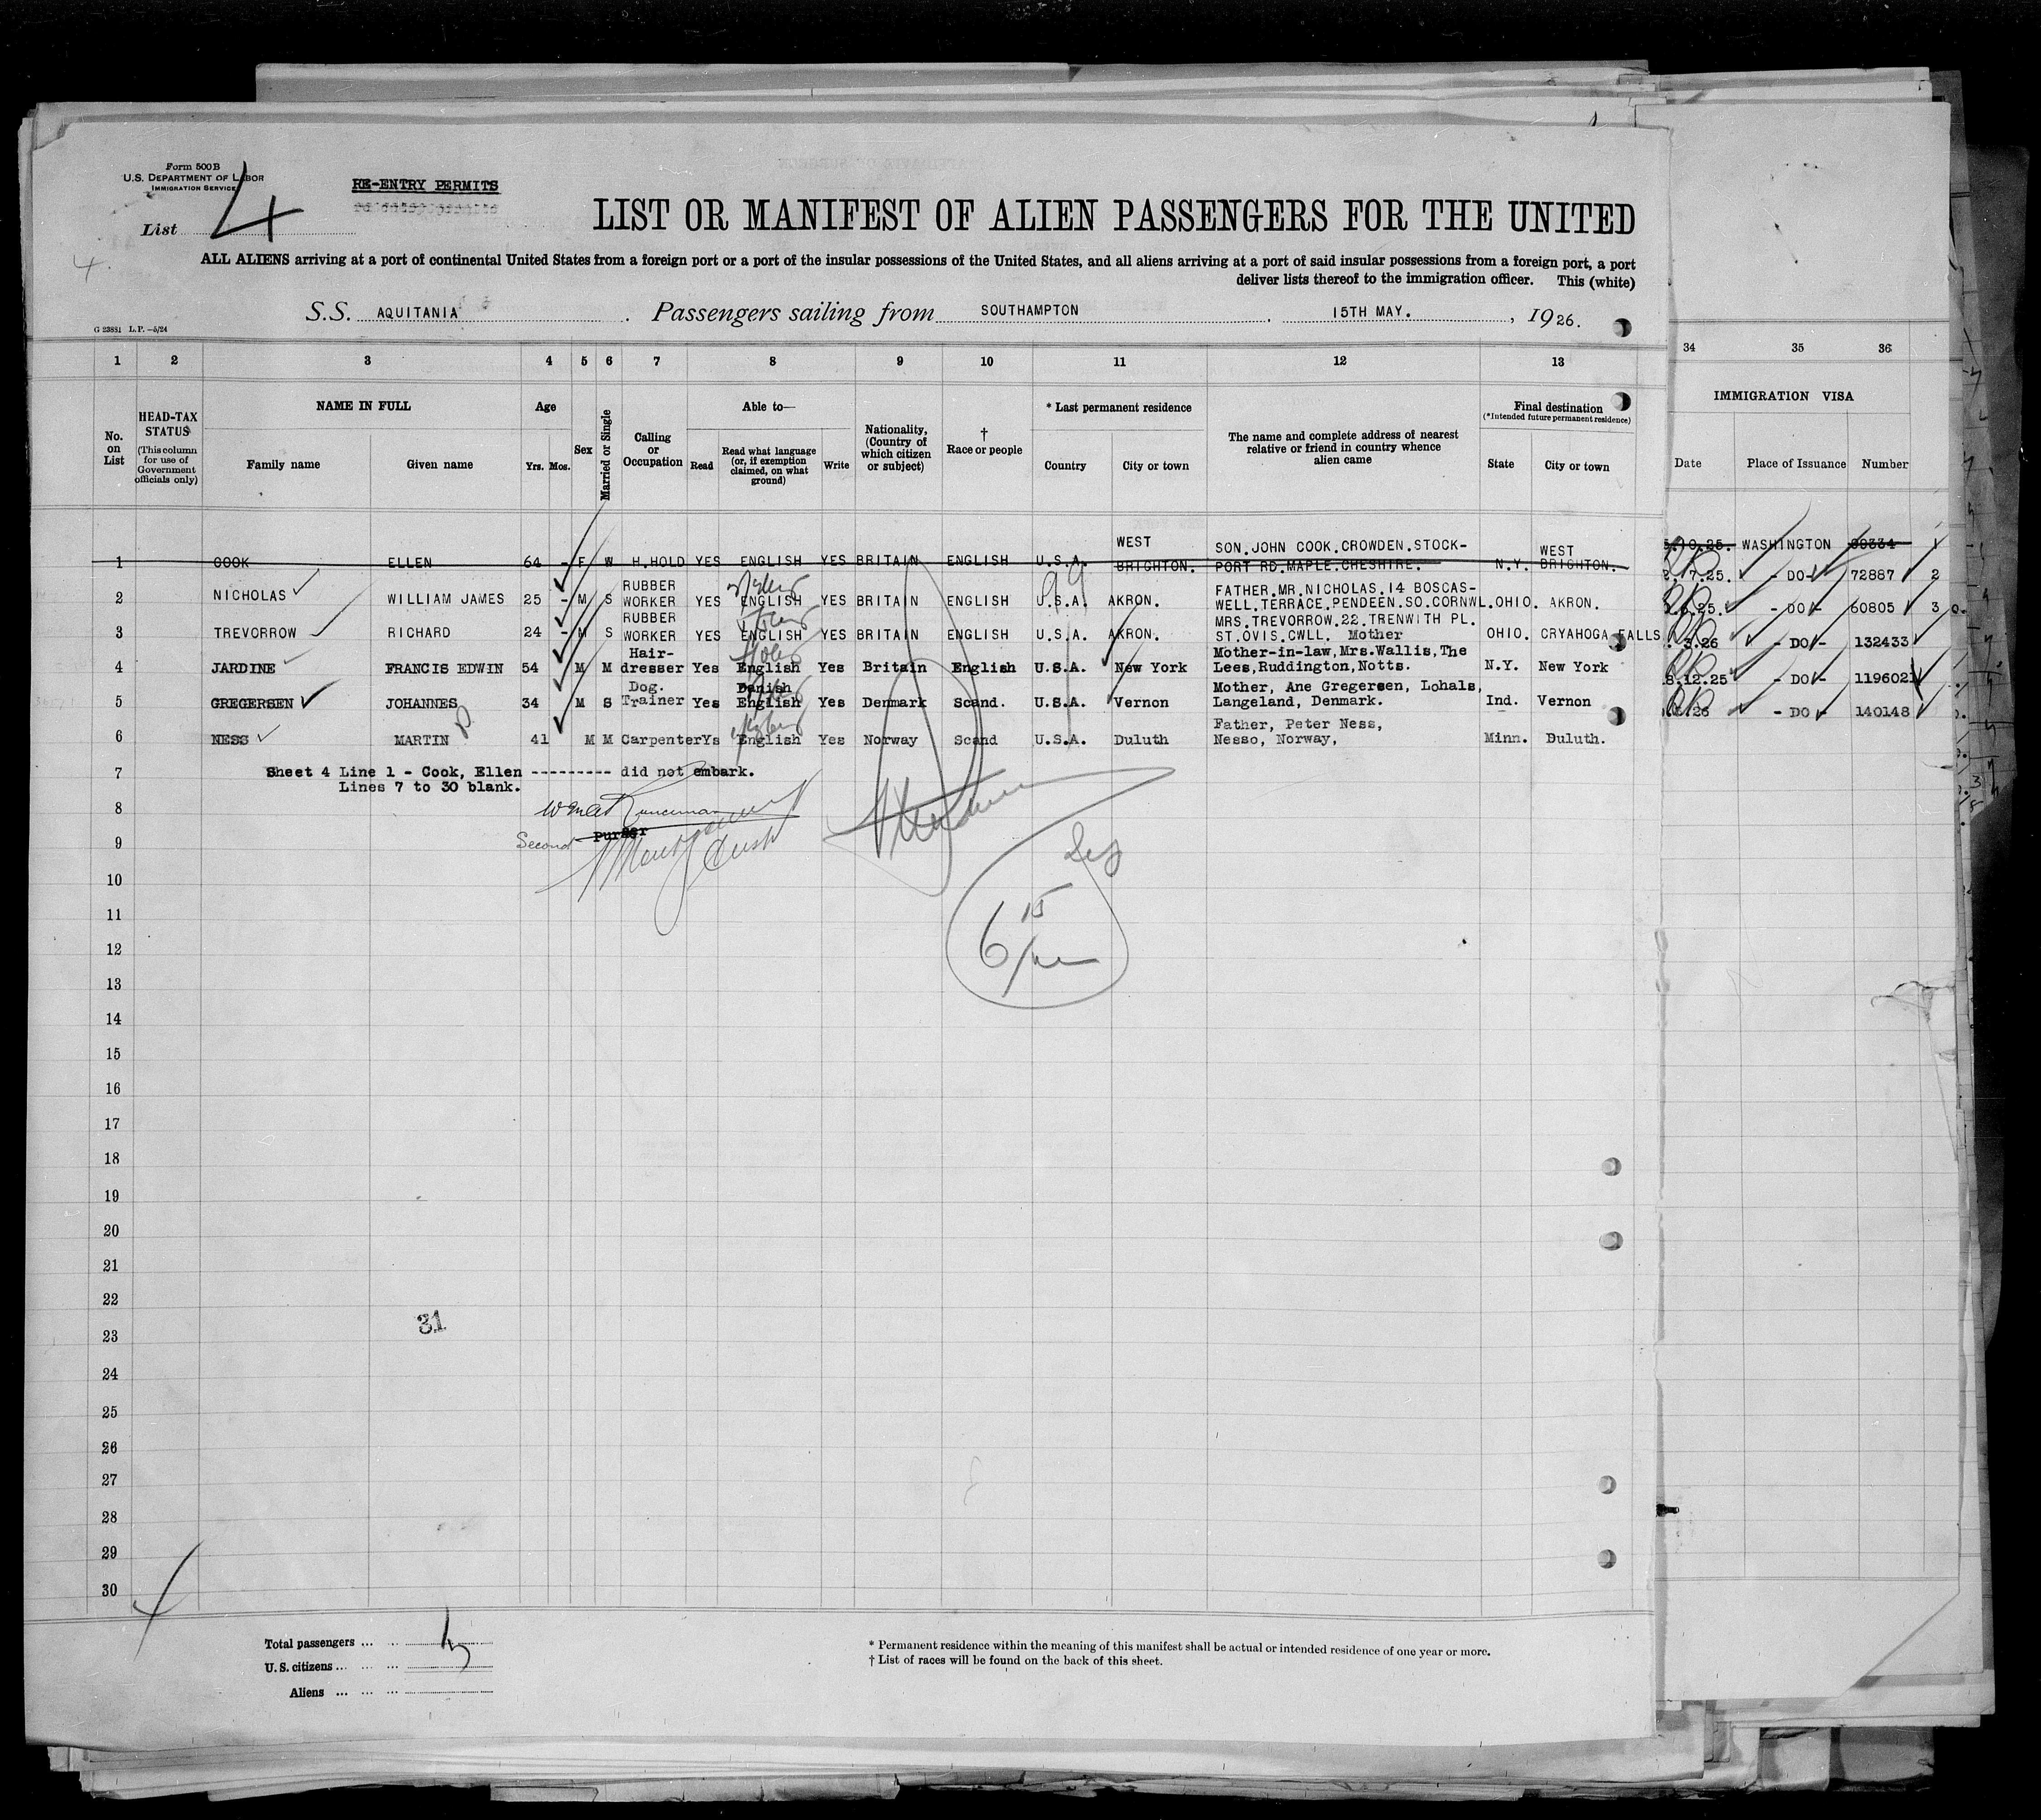 Form 500 B
U.S. DEPARTMENT OF LABOR
IMMIGRATION SERVICE
RE-ENTRY PERMITS
List 4
4.
LIST OR MANIFEST OF ALIEN PASSENGERS FOR THE UNITED
ALL ALIENS arriving at a port of continental United States from a foreign port or a port of the insular possessions of the United States, and all aliens arriving at a port of said insular possessions from a foreign port, a port
deliver lists thereof to the immigration officer. This (white)
S.S. AQUITANIA. Passengers sailing from SOUTHAMPTON. 15TH MAY., 1926.
G 23851 L.P.—5/24
1 2 3 4 5 6 7 8 9 10 11 12 13 34 35 36
No. on List
HEAD-TAX STATUS
(This column for use of Government officials only)
NAME IN FULL
Family name Given name
Age
Yrs. Mos.
Sex
Married or Single
Calling or Occupation
Able to—
Read
Read what language (or, if exemption claimed, on what ground)
Write
Nationality, (Country of which citizen or subject)
† Race or people
* Last permanent residence
Country City or town
The name and complete address of nearest relative or friend in country whence alien came
Final destination
(*Intended future permanent residence)
State City or town
IMMIGRATION VISA
Date Place of Issuance Number
WEST SON.JOHN COOK.CROWDEN.STOCK- WEST
1 COOK ELLEN 64 - F W H.HOLD YES ENGLISH YES BRITAIN ENGLISH U.S.A. BRIGHTON. PORT RD.MAPLE.CHESHIRE. N.Y. BRIGHTON. WASHINGTON 1
RUBBER FATHER.MR.NICHOLAS.14 BOSCAS-
2 NICHOLAS WILLIAM JAMES 25 - M S WORKER YES ENGLISH YES BRITAIN ENGLISH U.S.A. AKRON. WELL.TERRACE.PENDEEN.SO.CORNWL. OHIO. AKRON. 7.25. - DO - 72887 2
RUBBER MRS.TREVORROW.22.TRENWITH PL.
3 TREVORROW RICHARD 24 - M S WORKER YES ENGLISH YES BRITAIN ENGLISH U.S.A. AKRON. ST.OVIS.CWLL. Mother OHIO. CRYAHOGA FALLS 25. - DO - 60805 3
Hair- Mother-in-law,Mrs.Wallis,The
4 JARDINE FRANCIS EDWIN 54 M M dresser Yes English Yes Britain English U.S.A. New York Lees,Ruddington,Notts. N.Y. New York 3.26 - DO - 132433
Dog. Danish Mother, Ane Gregersen, Lohals,
5 GREGERSEN JOHANNES 34 M S Trainer Yes English Yes Denmark Scand. U.S.A. Vernon Langeland, Denmark. Ind. Vernon 8.12.25 - DO - 119602
Father, Peter Ness,
6 NESS MARTIN 41 M M Carpenter Ys English Yes Norway Scand U.S.A. Duluth Nesso, Norway, Minn. Duluth. 26 - DO - 140148
7 Sheet 4 Line 1 - Cook, Ellen --------- did not embark.
Lines 7 to 30 blank.
8
Second Purser
9
10
11
6 15
12
13
14
15
16
17
18
19
20
21
22
23 31
24
25
26
27
28
29
30
Total passengers ... ... 5
U.S. citizens ... ... ...
Aliens ... ... ...
* Permanent residence within the meaning of this manifest shall be actual or intended residence of one year or more.
† List of races will be found on the back of this sheet.